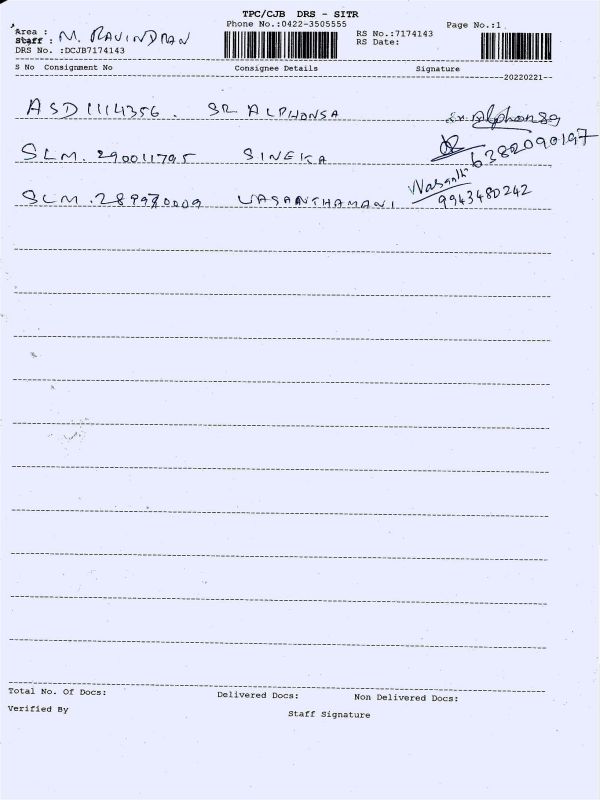 TPC/CJB DRS - SITR
Phone No.:0422-3505555
Page No.:1
Area :
Staff : M. RAVINDRAN
RS No.:7174143
RS Date:
DRS No. :DCJB7174143
S No Consignment No Consignee Details Signature
20220221
ASD1114356. SR ALPHONSA Sr. Alphonsa
SLM. 290011795 SINEKA 6382090197
SLM. 289980009 VASANTHAMANI Vasanth
9943480242
Total No. Of Docs: Delivered Docs: Non Delivered Docs:
Verified By Staff Signature